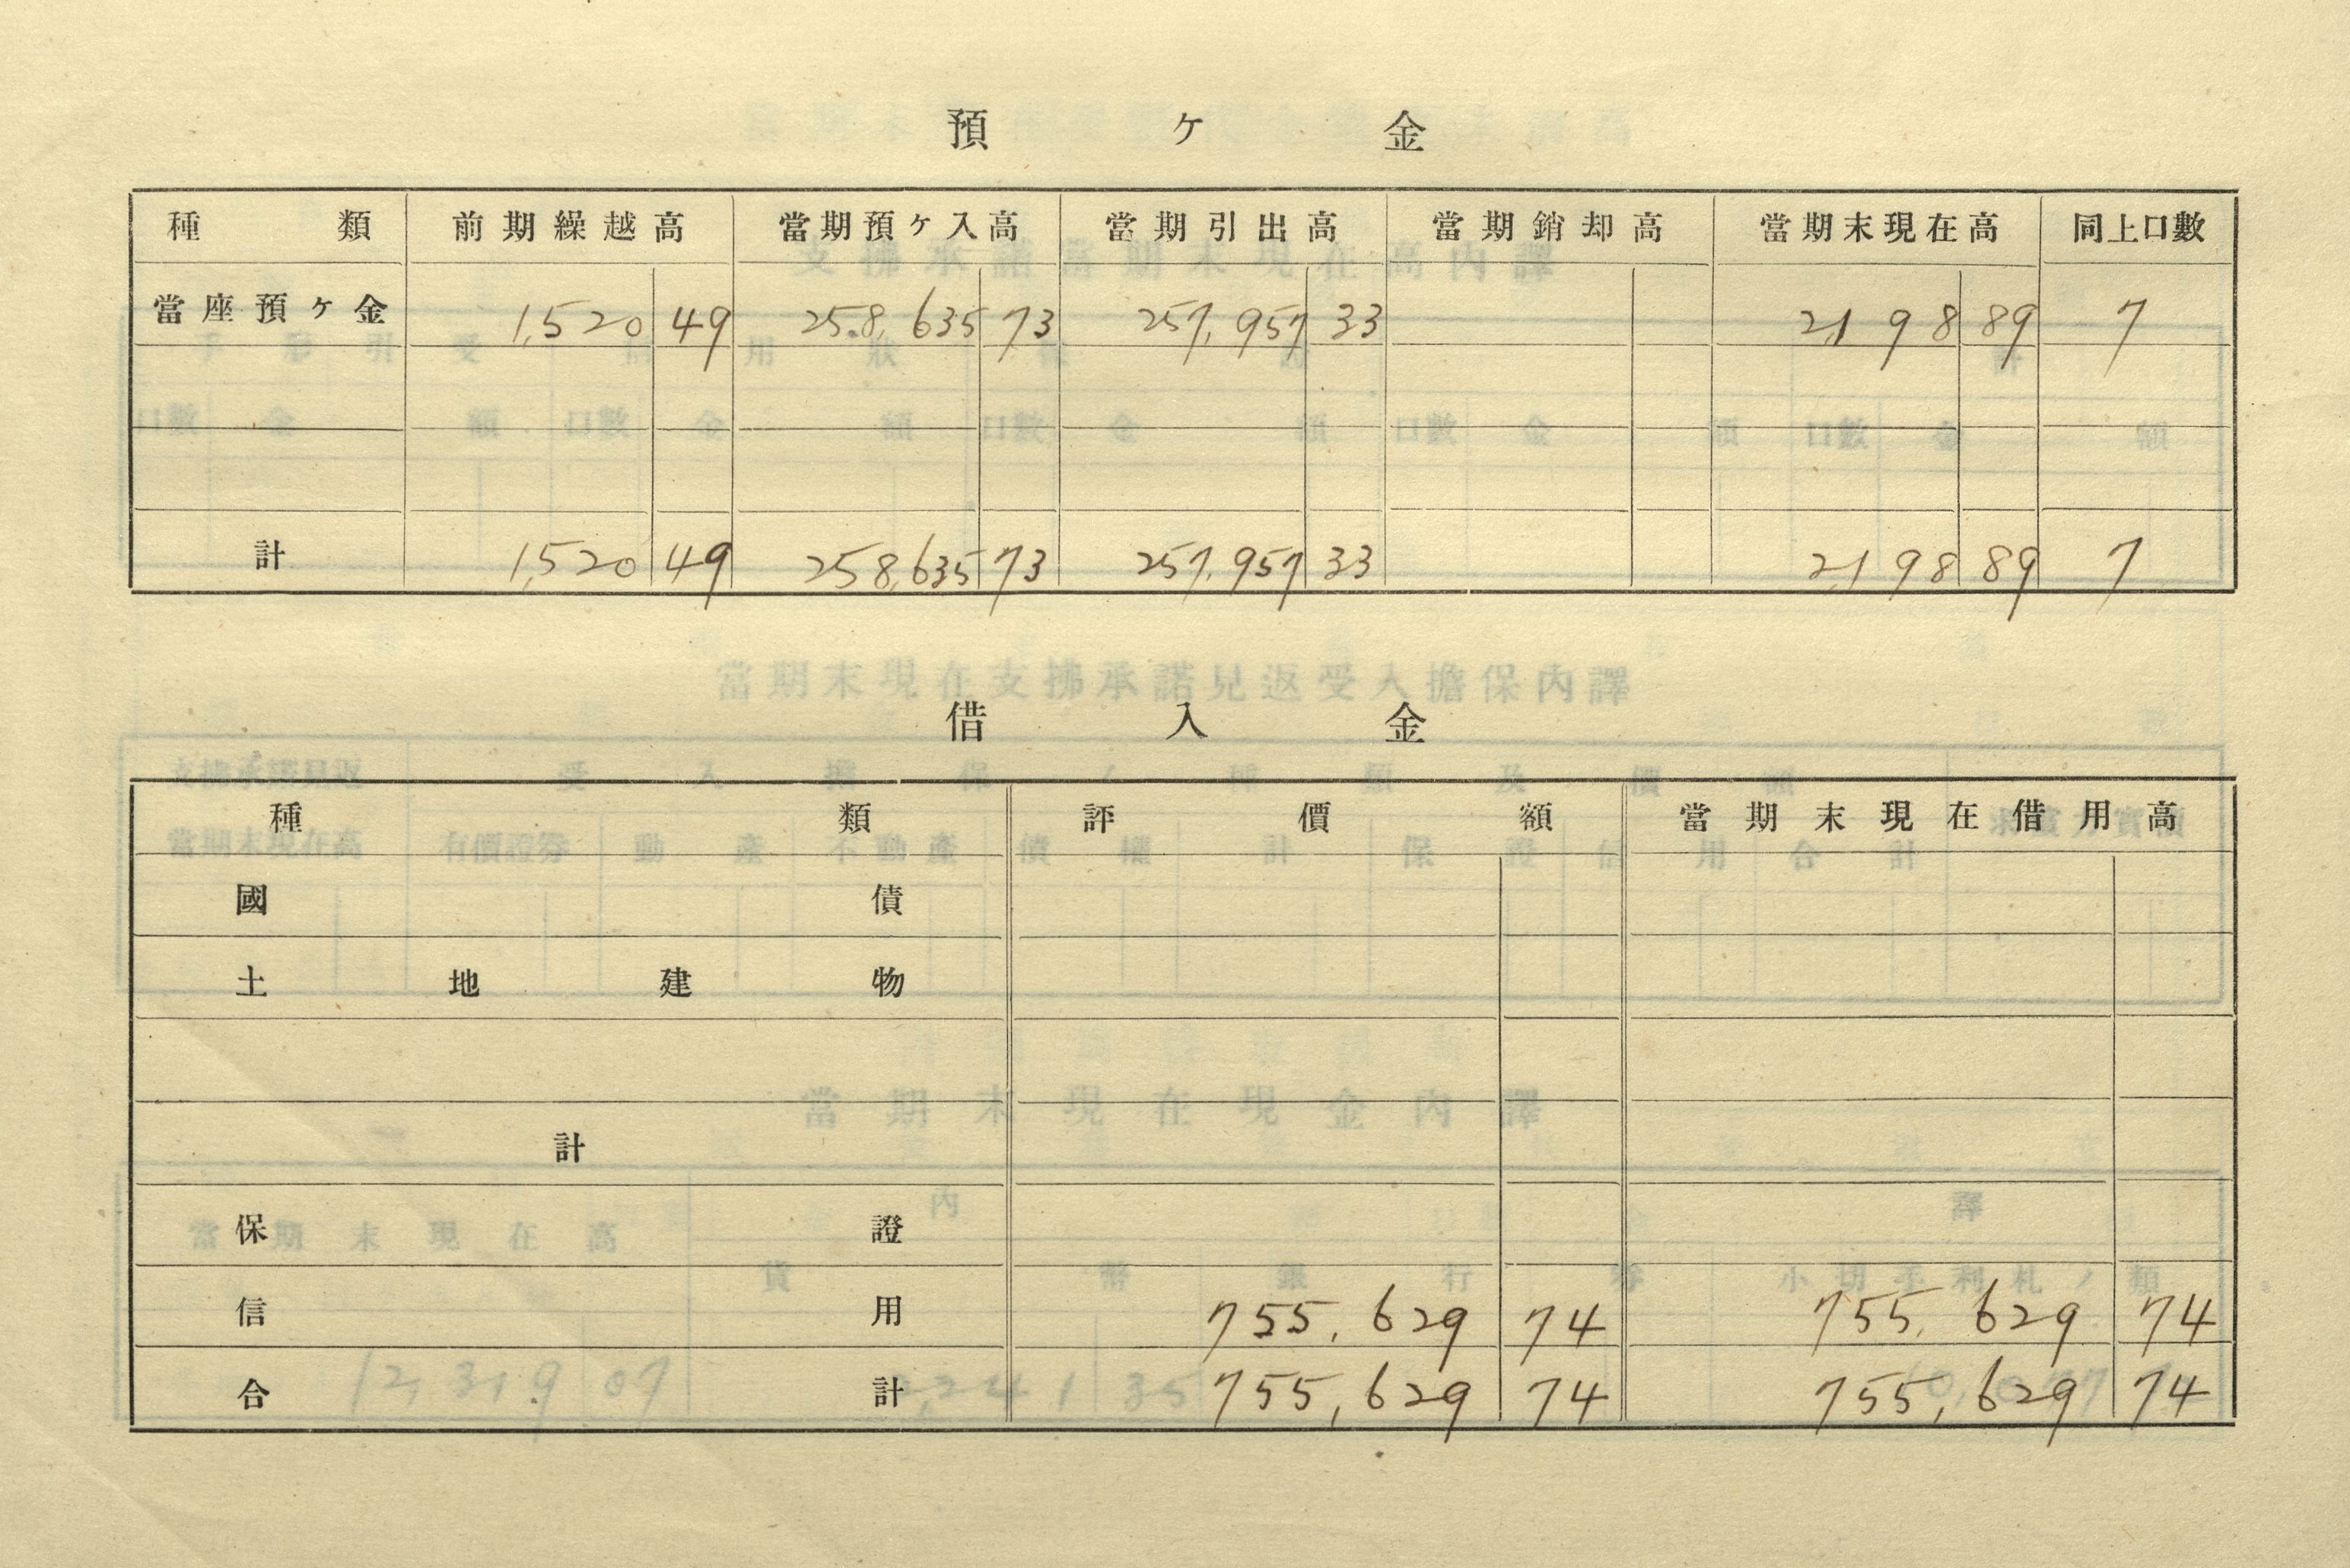 預ヶ金
種類 前期繰越高 當期預ヶ入高 當期引出高 當期銷却高 當期末現在高 同上口數
當座預ヶ金 1,520 49 258,635 73 257,957 33 2,198 89 7
計 1,520 49 258,635 73 257,957 33 2,198 89 7
借入金
種類 評價額 當期末現在借用高
國債
土地建物
計
保證
信用 755,629 74 755,629 74
合計 755,629 74 755,629 74